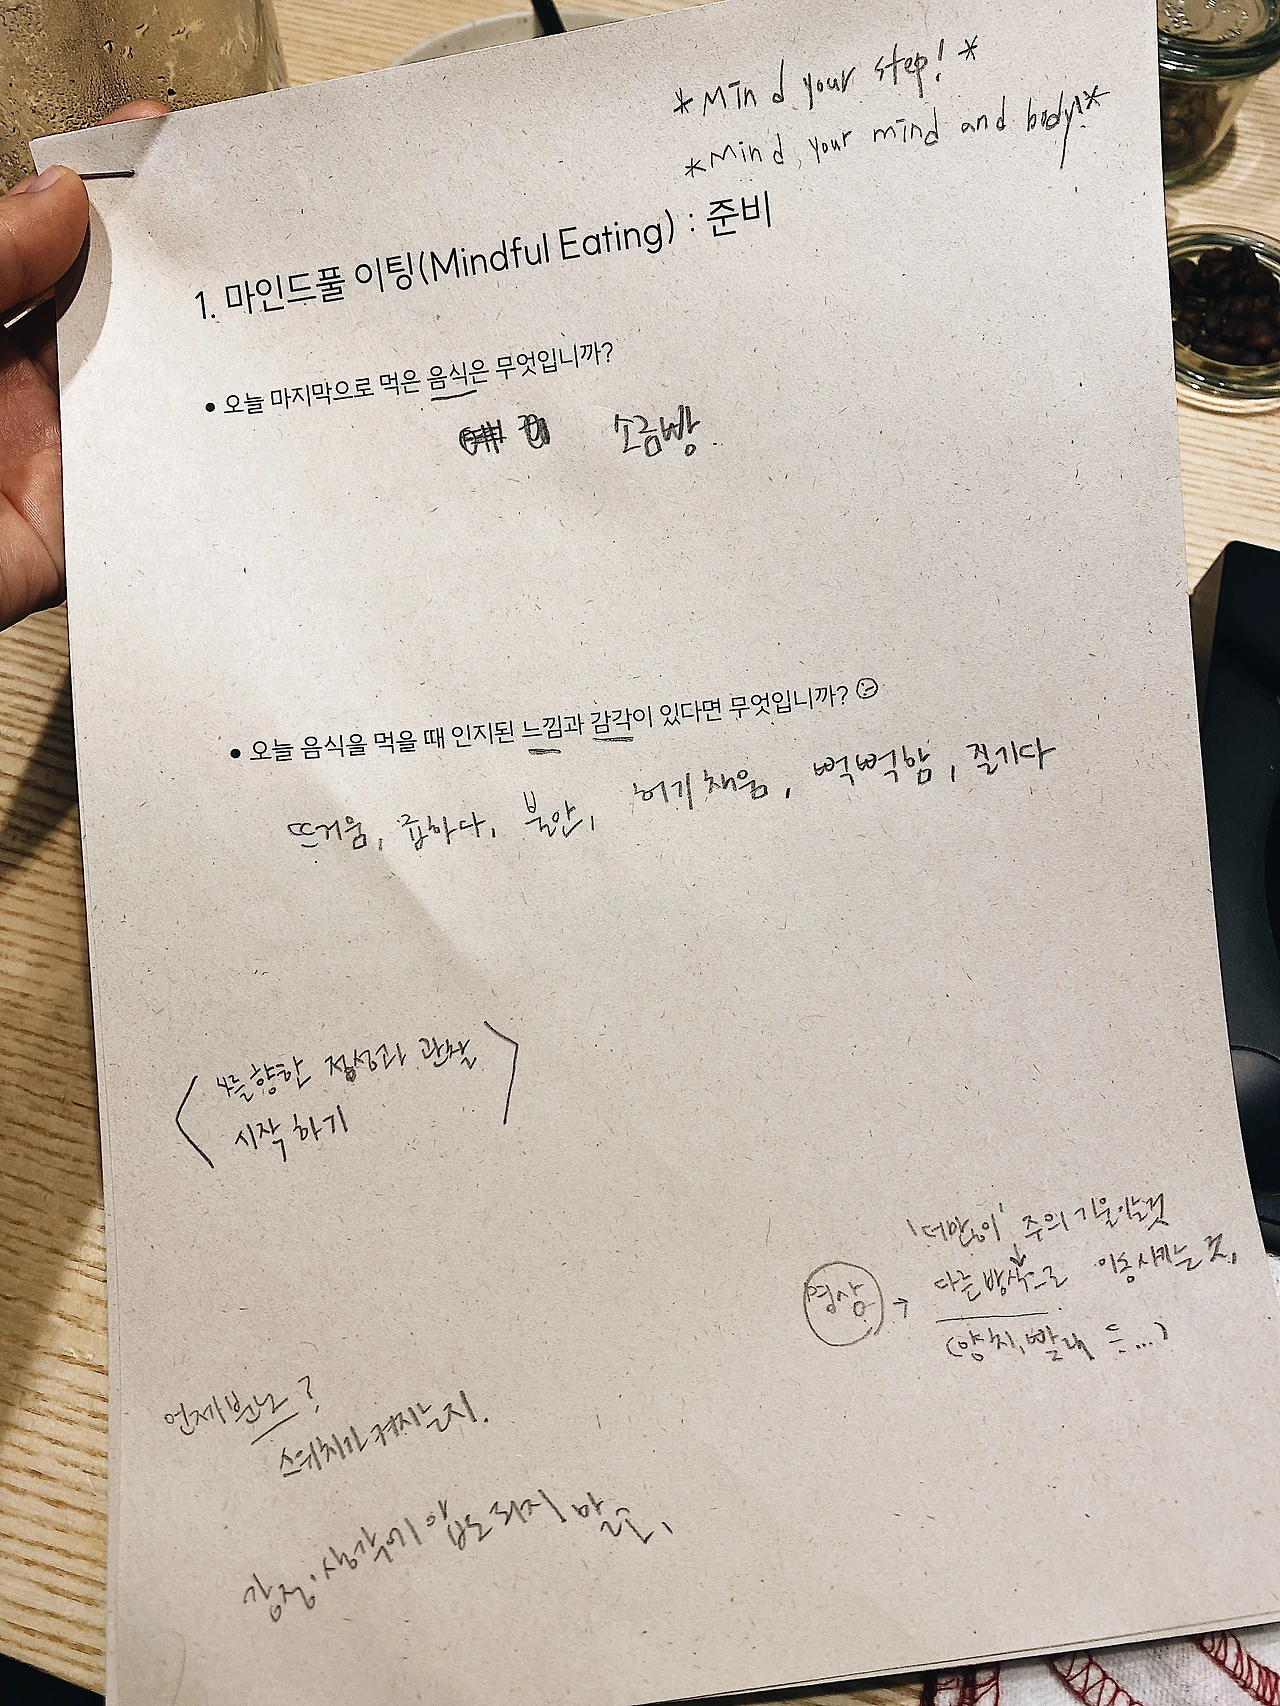 *Mind your step! *
*Mind your mind and body!*
1. 마인드풀 이팅(Mindful Eating) : 준비
• 오늘 마지막으로 먹은 음식은 무엇입니까?
소금빵
• 오늘 음식을 먹을 때 인지된 느낌과 감각이 있다면 무엇입니까?
뜨거움, 급하다, 불안, 허기 채움, 뻑뻑함, 질기다
향한 정성과 관찰
시작하기
주의 기울이는 것
명상 → 다른 방식으로 이동시키는 것,
(양치, 빨래 등...)
언제부턴?
스위치가 켜지는지.
감정·생각에 압도되지 말고,